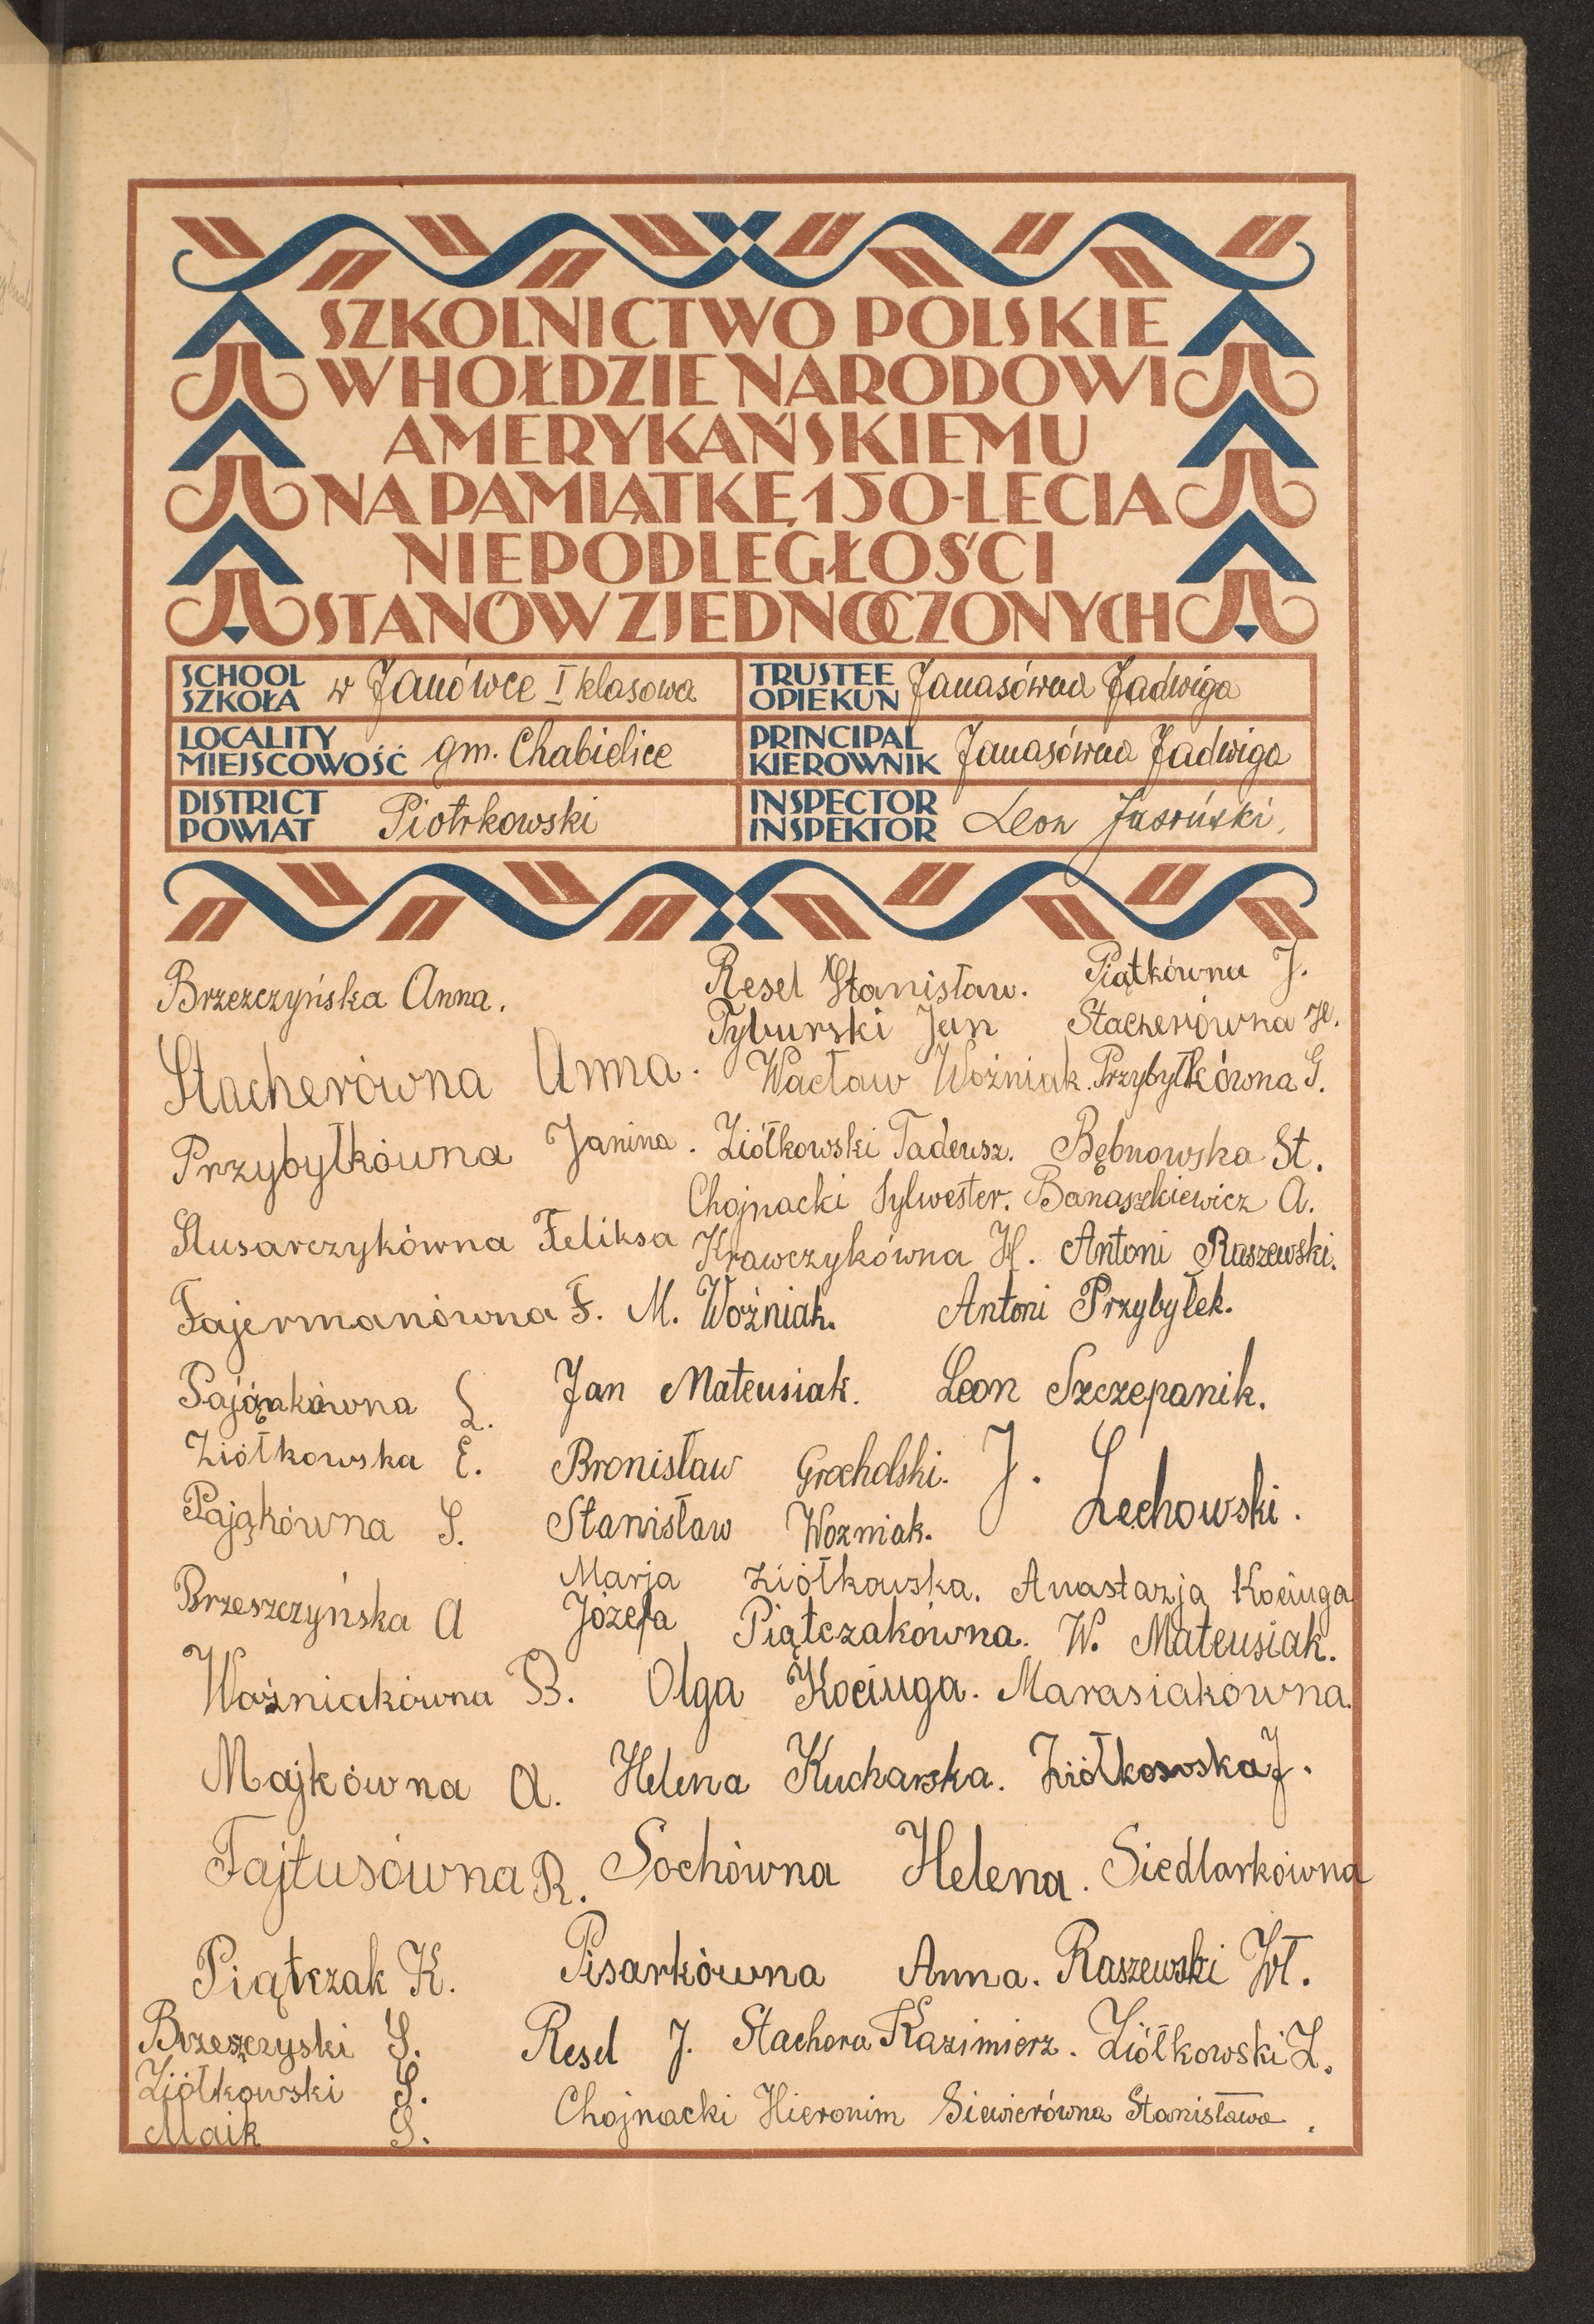 SZKOLNICTWO POLSKIE
W HOŁDZIE NARODOWI
AMERYKAŃSKIEMU
NA PAMIĄTKĘ 150-LECIA
NIEPODLEGŁOŚCI
STANÓW ZJEDNOCZONYCH
SCHOOL SZKOŁA w Janówce I klasowa
TRUSTEE OPIEKUN Janasówna Jadwiga
LOCALITY MIEJSCOWOŚĆ gm. Chabielice
PRINCIPAL KIEROWNIK Janasówna Jadwiga
DISTRICT POWIAT Piotrkowski
INSPECTOR INSPEKTOR Leon
Brzezczyńska Anna. Resel Stanisław. Piątkówna J.
Tyburski Jan Stacherówna H.
Stacherówna Anna. Wacław Woźniak. Przybyłkówna G.
Przybyłkówna Janina. Ziółkowski Tadeusz. Bębnowska St.
Chojnacki Sylwester. Banaszkiewicz A.
Slusarczykówna Feliksa Krawczykówna H. Antoni Raszewski.
Fajermanówna F. M. Woźniak. Antoni Przybyłek.
L. Jan Mateusiak. Leon Szczepanik.
Ziółkowska E. Bronisław Grocholski. J. Lechowski.
Pająkówna S. Stanisław Wozniak.
Marja Ziółkowska. Anastazja Kociuga
Brzeszczyńska A Józefa Piątczakówna. W. Mateusiak.
Woźniakówna B. Olga Kociuga. Marasiakówna.
Majkówna A. Helena Kucharska. Ziółkowska J.
Fajtusówna R. Sochówna Helena. Siedlarkówna
Piątczak K. Pisarkówna Anna. Raszewski Wł.
Brzeszczyski S. Resel J. Stachera Kazimierz. Ziółkowski Z.
Ziółkowski S.
Chojnacki Hieronim Siewierówna Stanisława.
Maik S.